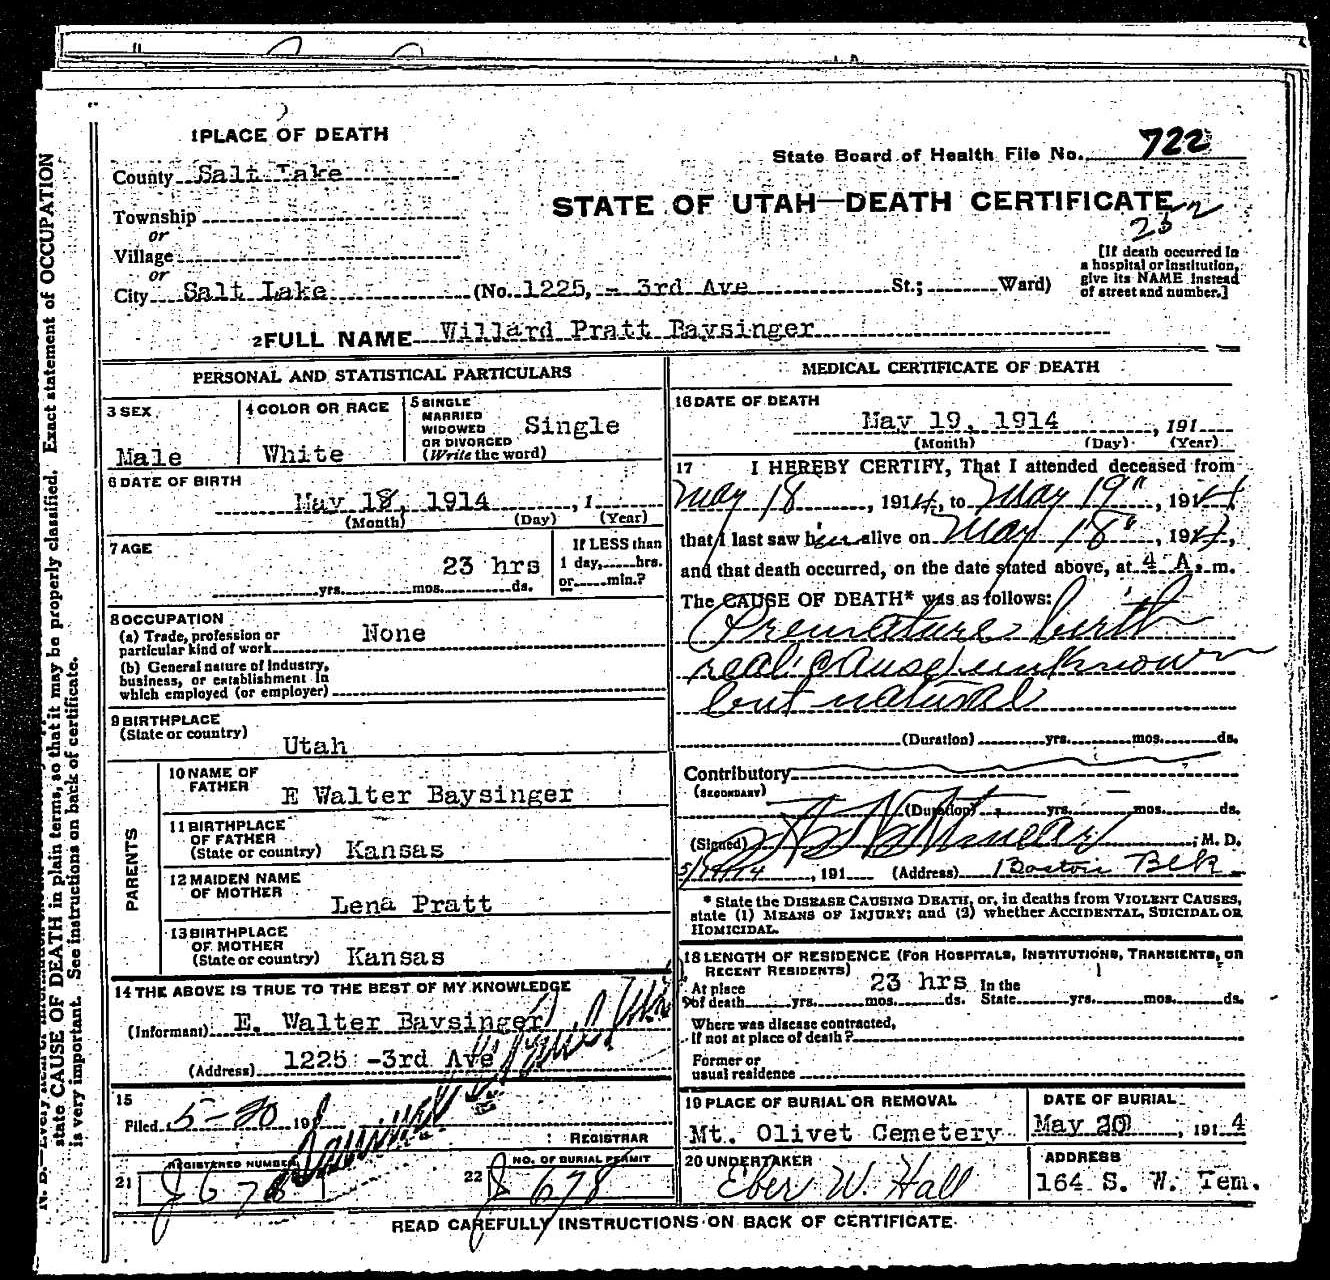 1 PLACE OF DEATH
County Salt Lake
State Board of Health File No. 722
STATE OF UTAH—DEATH CERTIFICATE
Township
or
Village
or
City Salt Lake (No. 1225, - 3rd Ave St.; Ward)
[If death occurred in
a hospital or institution,
give its NAME instead
of street and number.]
2 FULL NAME Willard Pratt Baysinger
PERSONAL AND STATISTICAL PARTICULARS
3 SEX
Male
4 COLOR OR RACE
White
5 SINGLE
MARRIED
WIDOWED
OR DIVORCED
(Write the word)
Single
6 DATE OF BIRTH
May 18, 1914, 1
(Month) (Day) (Year)
7 AGE
23 hrs
yrs. mos. ds.
If LESS than
1 day, hrs.
or min.?
8 OCCUPATION
(a) Trade, profession or
particular kind of work None
(b) General nature of industry,
business, or establishment in
which employed (or employer)
9 BIRTHPLACE
(State or country)
Utah
PARENTS
10 NAME OF
FATHER
E Walter Baysinger
11 BIRTHPLACE
OF FATHER
(State or country) Kansas
12 MAIDEN NAME
OF MOTHER
Lena Pratt
13 BIRTHPLACE
OF MOTHER
(State or country) Kansas
14 THE ABOVE IS TRUE TO THE BEST OF MY KNOWLEDGE
(Informant) E. Walter Baysinger
(Address) 1225 -3rd Ave
15
Filed 5-20 191
REGISTRAR
21 REGISTERED NUMBER
J 678
22 NO. OF BURIAL PERMIT
J 678
MEDICAL CERTIFICATE OF DEATH
16 DATE OF DEATH
May 19, 1914, 191
(Month) (Day) (Year)
17 I HEREBY CERTIFY, That I attended deceased from
May 18, 1914, to May 19", 1914
that I last saw him alive on May 18", 1914,
and that death occurred, on the date stated above, at 4 A. m.
The CAUSE OF DEATH* was as follows:
Premature birth
real cause unknown
but natural
(Duration) yrs. mos. ds.
Contributory
(SECONDARY)
(Duration) yrs. mos. ds.
(Signed) ; M. D.
5/19/14, 191 (Address) Boston Blk
* State the DISEASE CAUSING DEATH, or, in deaths from VIOLENT CAUSES,
state (1) MEANS OF INJURY; and (2) whether ACCIDENTAL, SUICIDAL OR
HOMICIDAL.
18 LENGTH OF RESIDENCE (FOR HOSPITALS, INSTITUTIONS, TRANSIENTS, OR
RECENT RESIDENTS)
At place 23 hrs In the
of death yrs. mos. ds. State yrs. mos. ds.
Where was disease contracted,
If not at place of death?
Former or
usual residence
19 PLACE OF BURIAL OR REMOVAL
Mt. Olivet Cemetery
DATE OF BURIAL
May 20, 1914
20 UNDERTAKER
Eber W. Hall
ADDRESS
164 S. W. Tem.
READ CAREFULLY INSTRUCTIONS ON BACK OF CERTIFICATE
state CAUSE OF DEATH in plain terms, so that it may be properly classified. Exact statement of OCCUPATION
is very important. See instructions on back of certificate.